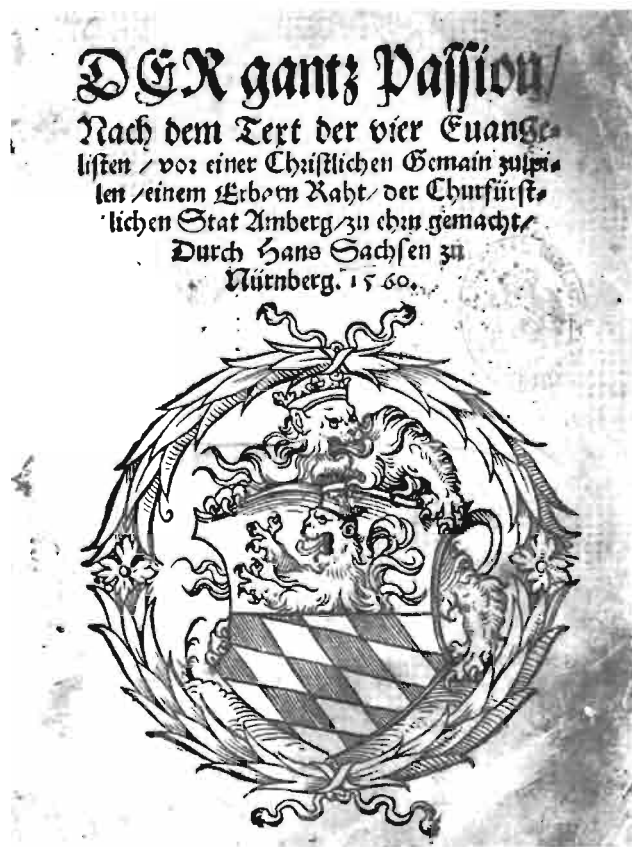 DER gantz Passion/
Nach dem Text der vier Euange-
listen / vor einer Christlichen Gemain zuspi-
len / einem Erborn Raht / der Churfürst-
lichen Stat Amberg / zu ehrn gemacht /
Durch Hans Sachsen zu
Nürnberg. 1560.